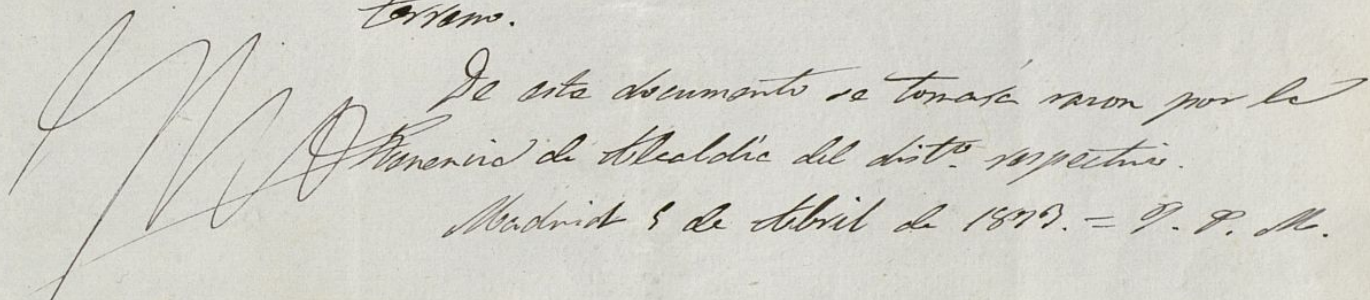 terreno.
De este documento se tomará razon por la
Tenencia de Alcaldia del distº respectivo.
Madrid 5 de Abril de 1873. = P. P. M.